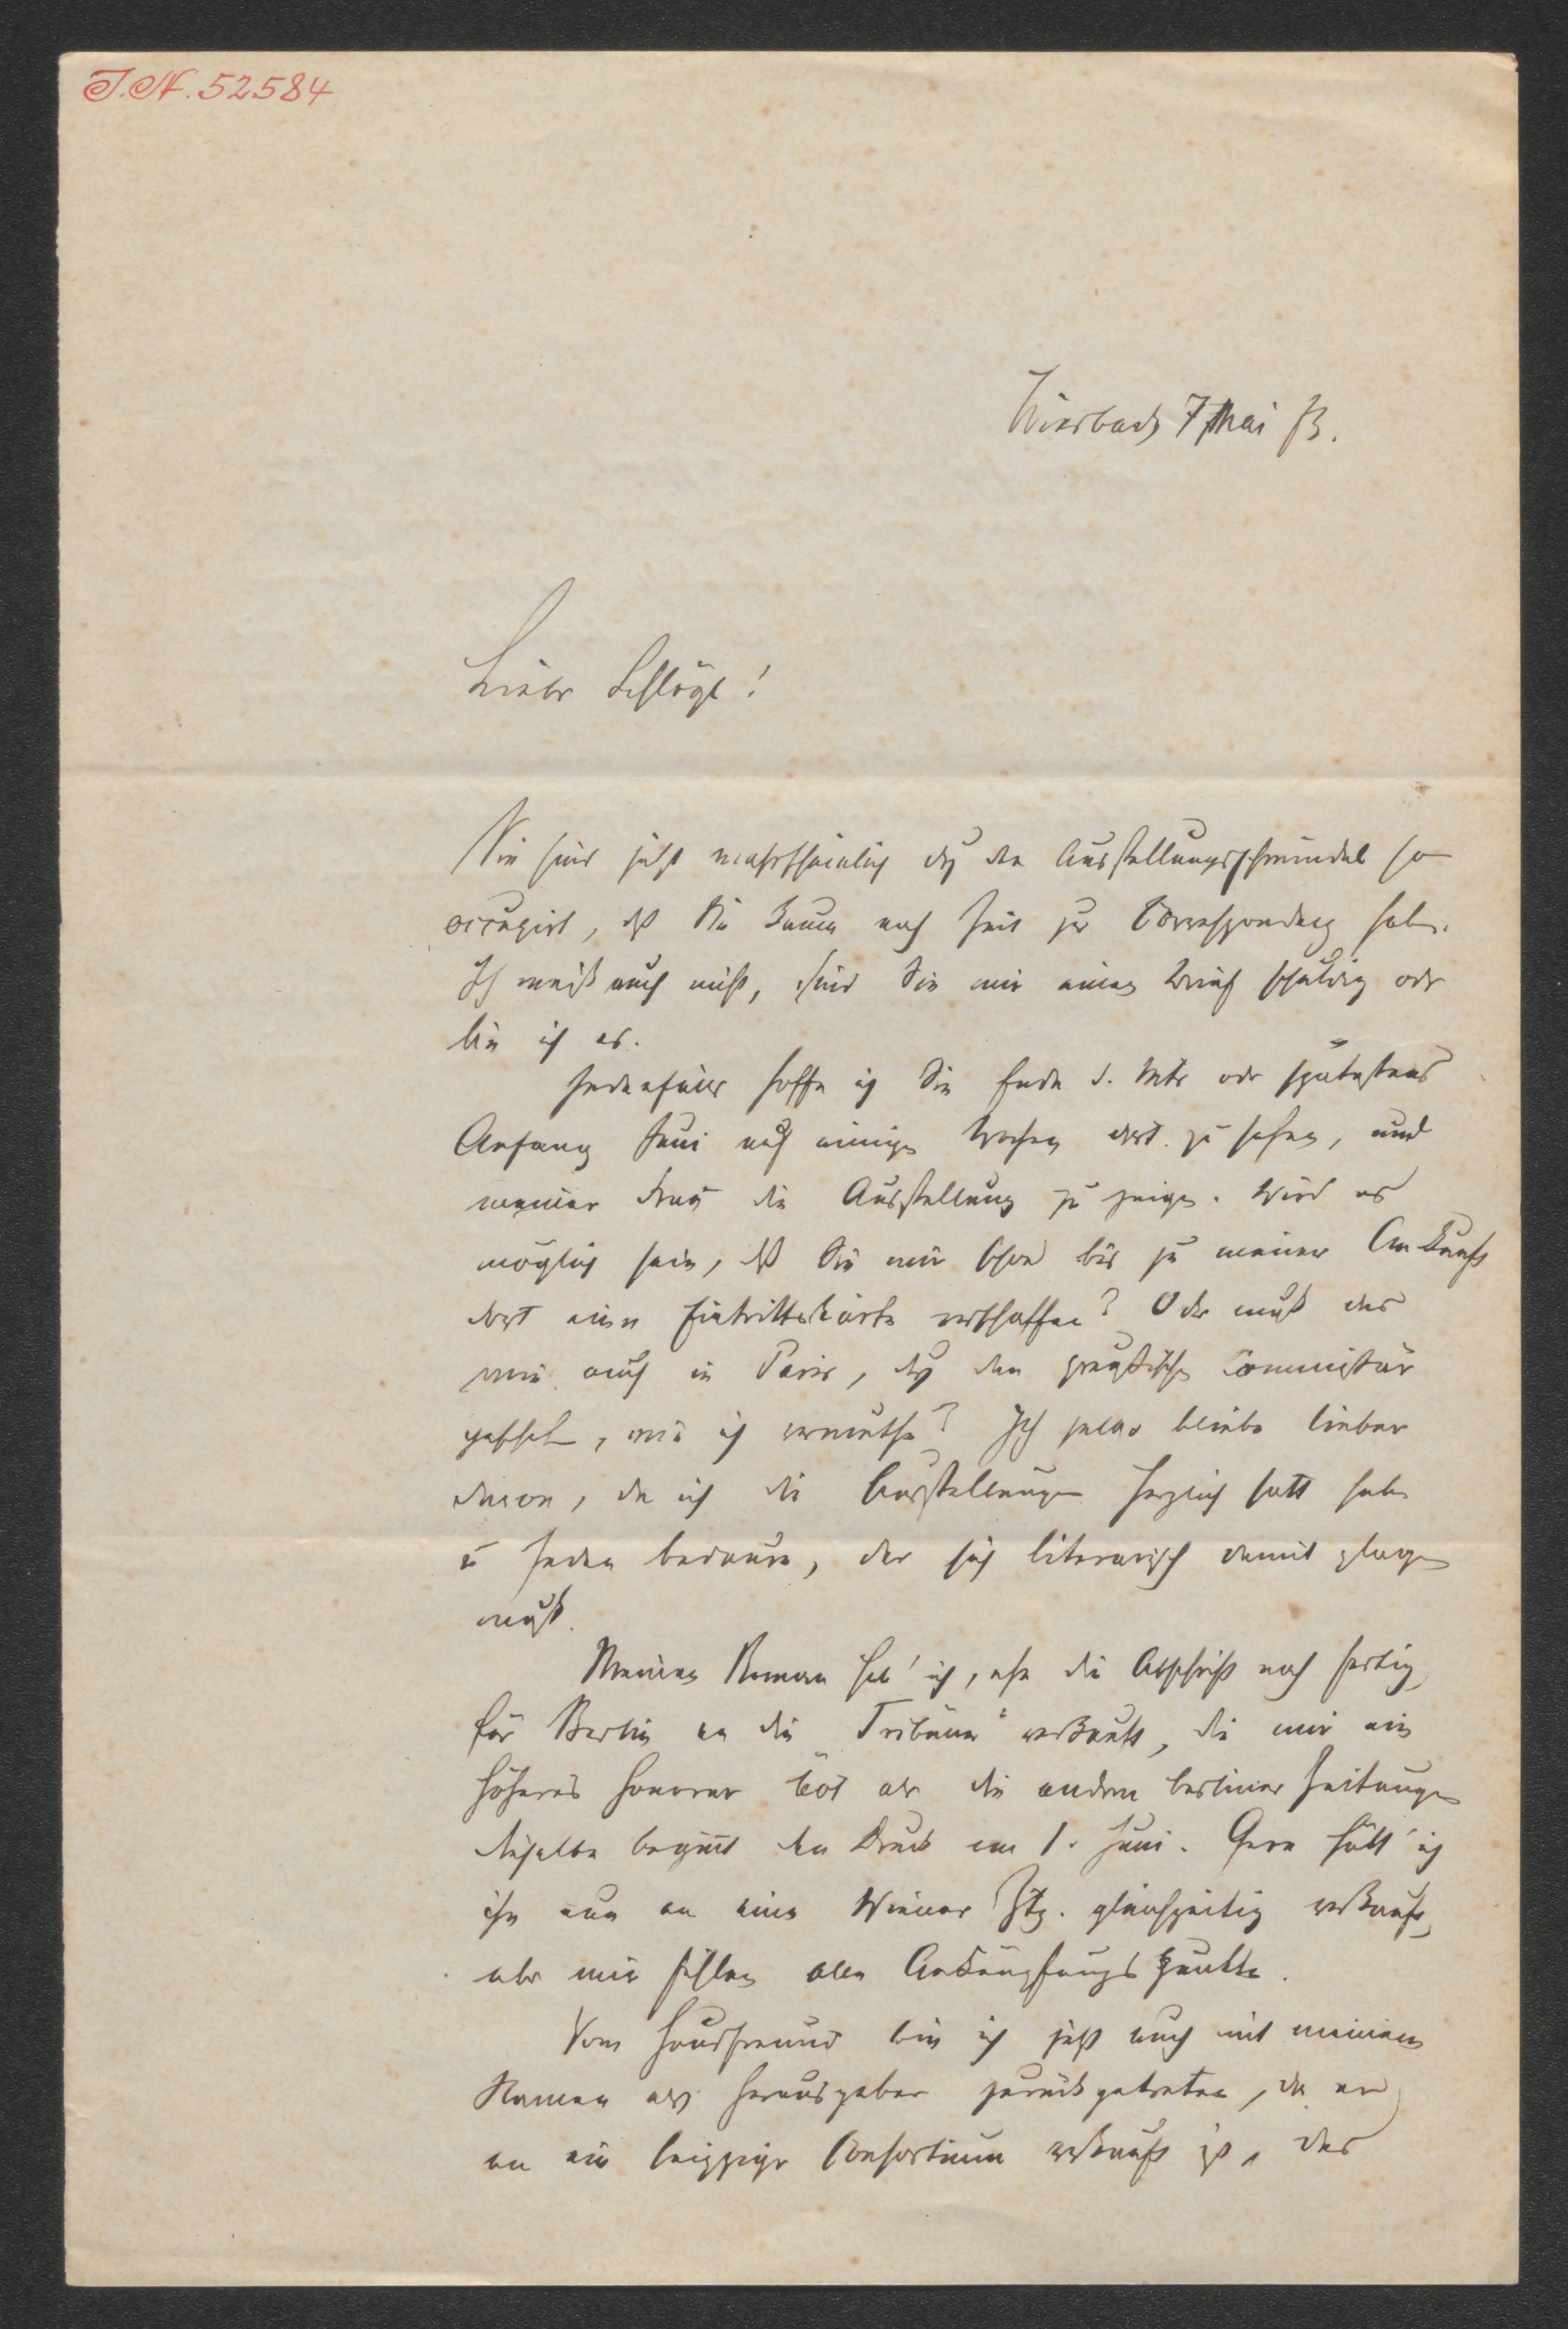 I.N. 52584
Wiesbad 7 Mai 73.
Lieber Schlögl!
Sie sind jetzt wahrscheinlich dch den Ausstellungsschwindel so
occupirt, dß Sie kaum noch Zeit zur Correspondenz haben.
Ich weiß auch nicht, sind Sie mir einen Brief schuldig oder
bin ich es.
Jedenfalls hoffe ich Sie Ende d. Mts oder spätestens
Anfang Juni auf einige Wochen dort zu sehen, und
meiner Frau die Ausstellung zu zeigen. Wird es
möglich sein, dß Sie mir schon bis zu meiner Ankunft
dort eine Eintrittskarte verschaffen? Oder muß das
wie auch in Paris, dch den preußischen Commissär
geschehen, wie ich vermuthe? Ich selbst bliebe lieber
davon, da ich die Ausstellungen herzlich satt habe
u Jeden bedaure, der sich literarisch damit plagen
muß.
Meinen Roman hab' ich, ehe die Abschrift noch fertig
für Berlin an die „Tribüne“ verkauft, die mir ein
höheres Honorar bot als die andren berliner Zeitungen
dieselbe beginnt den Druck am 1. Juni. Gern hätt' ich
ihn nun an eine Wiener Ztg. gleichzeitig verkauft,
aber mir fehlen alle Anknüpfungspunkte.
Vom Hausfreund bin ich jetzt auch mit meinem
Namen als Herausgeber zurückgetreten, da er
an ein leipziger Consortium verkauft ist, das